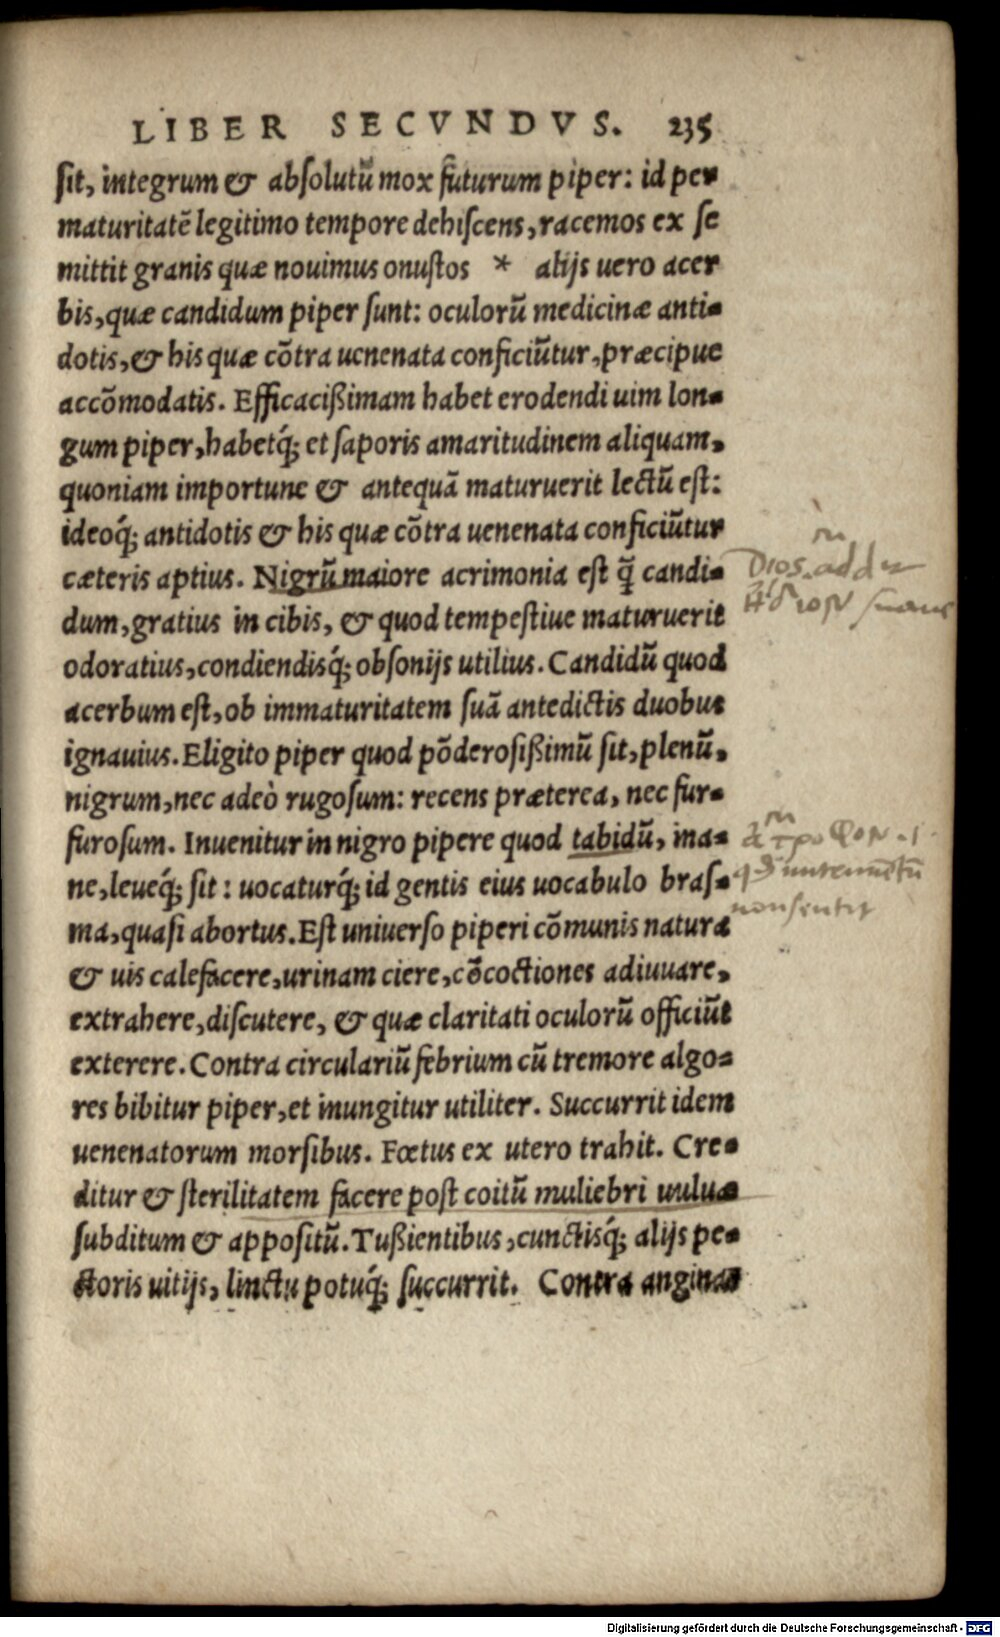 LIBER SECVNDVS. 235
sit, integrum & absolutũ mox futurum piper: id per
maturitatẽ legitimo tempore dehiscens, racemos ex se
mittit granis quæ nouimus onustos * alijs uero acer
bis, quæ candidum piper sunt: oculorũ medicinæ anti-
dotis, & his quæ cõtra uenenata conficiũtur, præcipue
accõmodatis. Efficacißimam habet erodendi uim lon-
gum piper, habetq́; et saporis amaritudinem aliquam,
quoniam importune & antequã maturuerit lectũ est:
ideoq́; antidotis & his quæ cõtra uenenata conficiũtur
cæteris aptius. Nigrũ maiore acrimonia est q̃ candi-
dum, gratius in cibis, & quod tempestiue maturuerit
odoratius, condiendisq́; obsonijs utilius. Candidũ quod
acerbum est, ob immaturitatem suã antedictis duobus
ignauius. Eligito piper quod põderosißimũ sit, plenũ,
nigrum, nec adeò rugosum: recens præterea, nec fur-
furosum. Inuenitur in nigro pipere quod tabidũ, ina-
ne, leueq́; sit: uocaturq́; id gentis eius uocabulo bras-
ma, quasi abortus. Est uniuerso piperi cõmunis natura
& uis calefacere, urinam ciere, cõcoctiones adiuuare,
extrahere, discutere, & quæ claritati oculorũ officiũt
exterere. Contra circulariũ febrium cũ tremore algo-
res bibitur piper, et inungitur utiliter. Succurrit idem
uenenatorum morsibus. Fœtus ex utero trahit. Cre-
ditur & sterilitatem facere post coitũ muliebri uuluæ
subditum & appositũ. Tußientibus, cunctisq́; alijs pe-
ctoris uitijs, linctu potuq́; succurrit. Contra anginas
Dios. addit
ἄτροφον .i.
nutrimẽtũ
non sentit
Digitalisierung gefördert durch die Deutsche Forschungsgemeinschaft - DFG